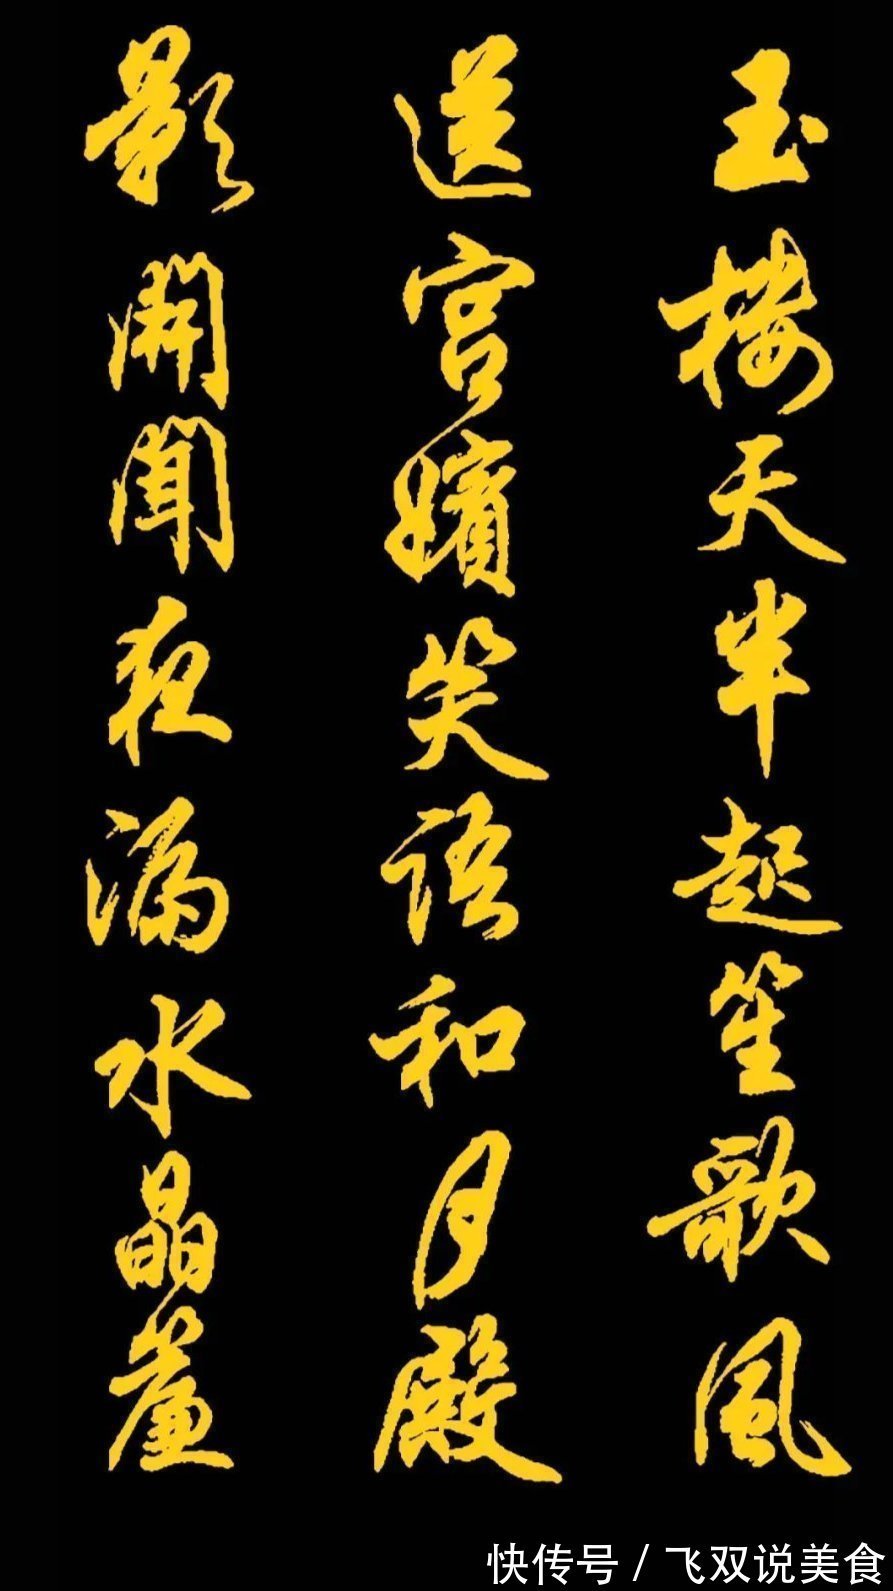 玉楼天半起笙歌風
送宫嬪笑語和月殿
影開聞夜漏水晶簾
快传号 / 飞双说美食